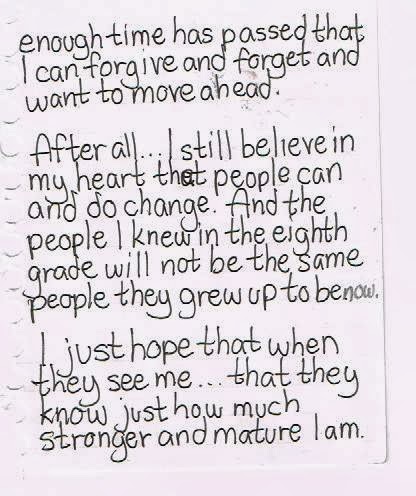 enough time has passed that
I can forgive and forget and
want to move ahead.
After all... I still believe in
my heart that people can
and do change. And the
people I knew in the eighth
grade will not be the same
people they grew up to be now.
I just hope that when
they see me... that they
know just how much
stronger and mature I am.